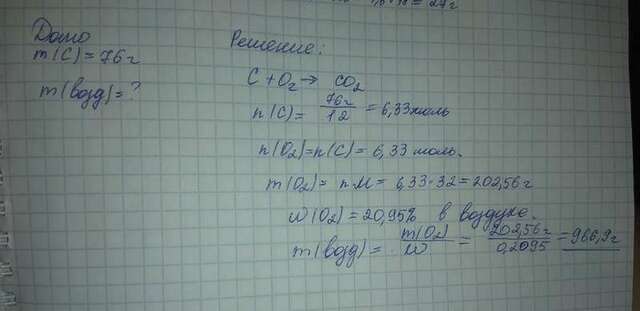 = 27г
Дано
m(C)=76г
m(возд)=?
Решение:
C+O₂→ CO₂
n(C)= 76г/12 = 6,33моль
n(O₂)=n(C)= 6,33 моль.
m(O₂)= nM = 6,33·32=202,56г
w(O₂)=20,95% в воздухе.
m(возд)= m(O₂)/w = 202,56г/0,2095 =966,9г